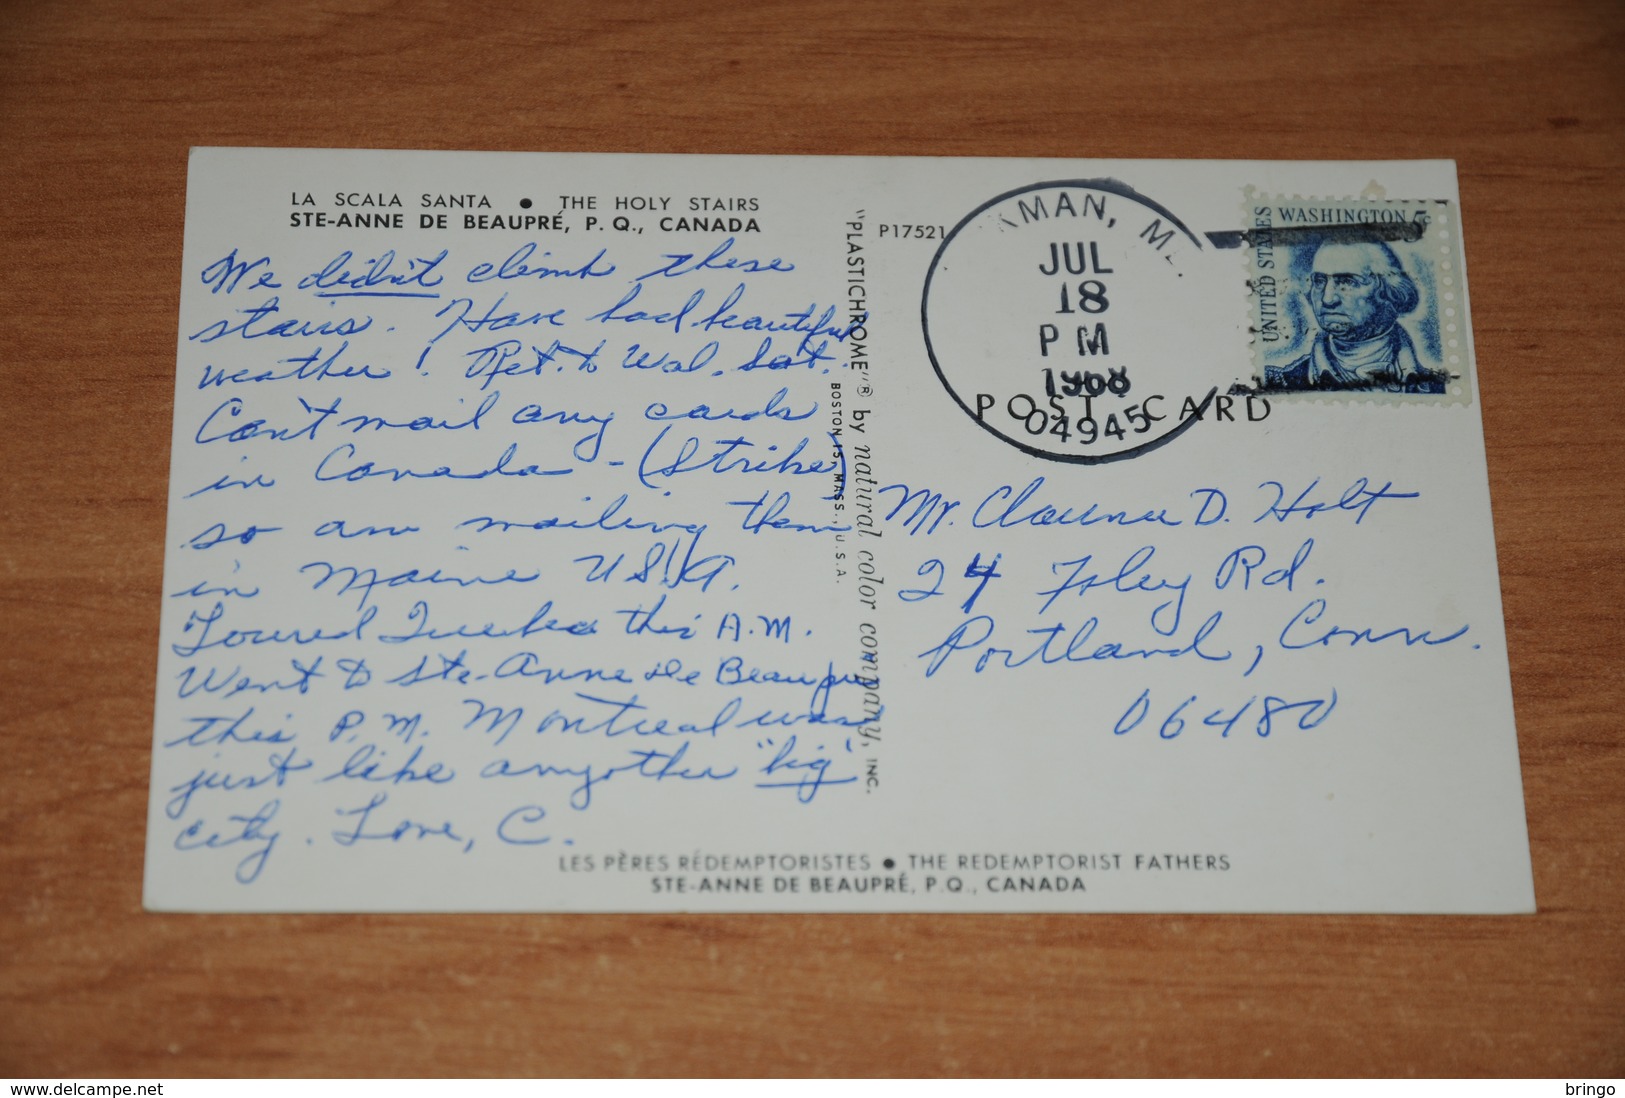 LA SCALA SANTA • THE HOLY STAIRS
STE-ANNE DE BEAUPRÉ, P. Q., CANADA
We didn't climb these
stairs. Have had beautiful
weather! Ret. to Wal. Sat.
Can't mail any cards
in Canada - (Strike)
so am mailing them
in Maine U.S.A.
Toured Quebec this A.M.
Went to Ste-Anne de Beaupre
this P.M. Montreal was
just like anyother "big"
city. Love, C.
"PLASTICHROME"® by natural color company, INC.
BOSTON 15, MASS., U.S.A.
P17521
KMAN, ME.
JUL
18
PM
1968
04945
UNITED STATES
WASHINGTON 5c
POST CARD
Mr. Clarence D. Holt
24 Foley Rd.
Portland, Conn.
06480
LES PÈRES RÉDEMPTORISTES • THE REDEMPTORIST FATHERS
STE-ANNE DE BEAUPRÉ, P.Q., CANADA
www.delcampe.net
bringo